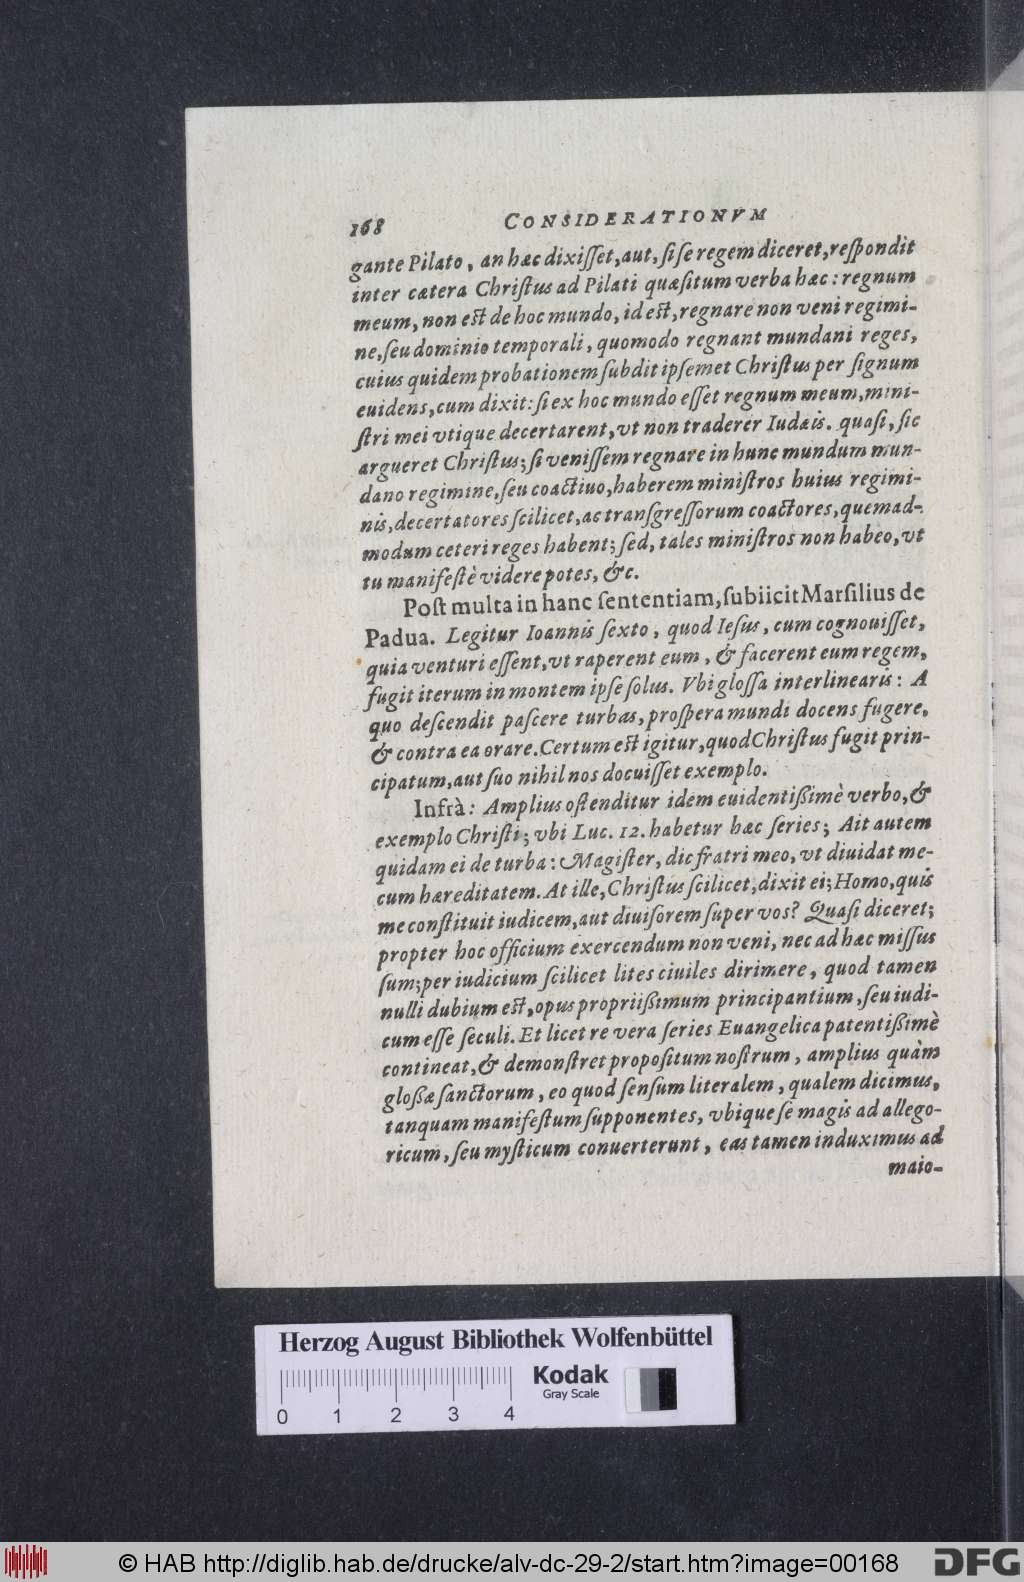 168 CONSIDERATIONVM
gante Pilato, an hæc dixiſſet, aut, ſi ſe regem diceret, reſpondit
inter cætera Chriſtus ad Pilati quæſitum verba hæc: regnum
meum, non est de hoc mundo, id est, regnare non veni regimi-
ne, ſeu dominio temporali, quomodo regnant mundani reges,
cuius quidem probationem ſubdit ipſemet Chriſtus per ſignum
euidens, cum dixit: ſi ex hoc mundo eſſet regnum meum, mini-
ſtri mei vtique decertarent, vt non traderer Iudæis. quaſi, ſic
argueret Chriſtus; ſi veniſſem regnare in hunc mundum mun-
dano regimine, ſeu coactiuo, haberem miniſtros huius regimi-
nis, decertatores ſcilicet, ac tranſgreſſorum coactores, quemad-
modum ceteri reges habent; ſed, tales miniſtros non habeo, vt
tu manifeſtè videre potes, &c.
Poſt multa in hanc ſententiam, ſubiicit Marſilius de
Padua. Legitur Ioannis ſexto, quod Ieſus, cum cognouiſſet,
quia venturi eſſent, vt raperent eum, & facerent eum regem,
fugit iterum in montem ipſe ſolus. Vbi gloſſa interlinearis: A
quo deſcendit paſcere turbas, proſpera mundi docens fugere,
& contra ea orare. Certum est igitur, quod Chriſtus fugit prin-
cipatum, aut ſuo nihil nos docuiſſet exemplo.
Infrà: Amplius oſtenditur idem euidentißimè verbo, &
exemplo Chriſti; vbi Luc. 12. habetur hæc ſeries; Ait autem
quidam ei de turba: Magiſter, dic fratri meo, vt diuidat me-
cum hæreditatem. At ille, Chriſtus ſcilicet, dixit ei; Homo, quis
me conſtituit iudicem, aut diuiſorem ſuper vos? Quaſi diceret;
propter hoc officium exercendum non veni, nec ad hæc miſſus
ſum; per iudicium ſcilicet lites ciuiles dirimere, quod tamen
nulli dubium est, opus propriißimum principantium, ſeu iudi-
cum eſſe ſeculi. Et licet re vera ſeries Euangelica patentißimè
contineat, & demonſtret propoſitum noſtrum, amplius quàm
gloßæ ſanctorum, eo quod ſenſum literalem, qualem dicimus,
tanquam manifeſtum ſupponentes, vbique ſe magis ad allego-
ricum, ſeu myſticum conuerterunt, eas tamen induximus ad
maio-
Herzog August Bibliothek Wolfenbüttel
Kodak
Gray Scale
0 1 2 3 4
© HAB http://diglib.hab.de/drucke/alv-dc-29-2/start.htm?image=00168
DFG